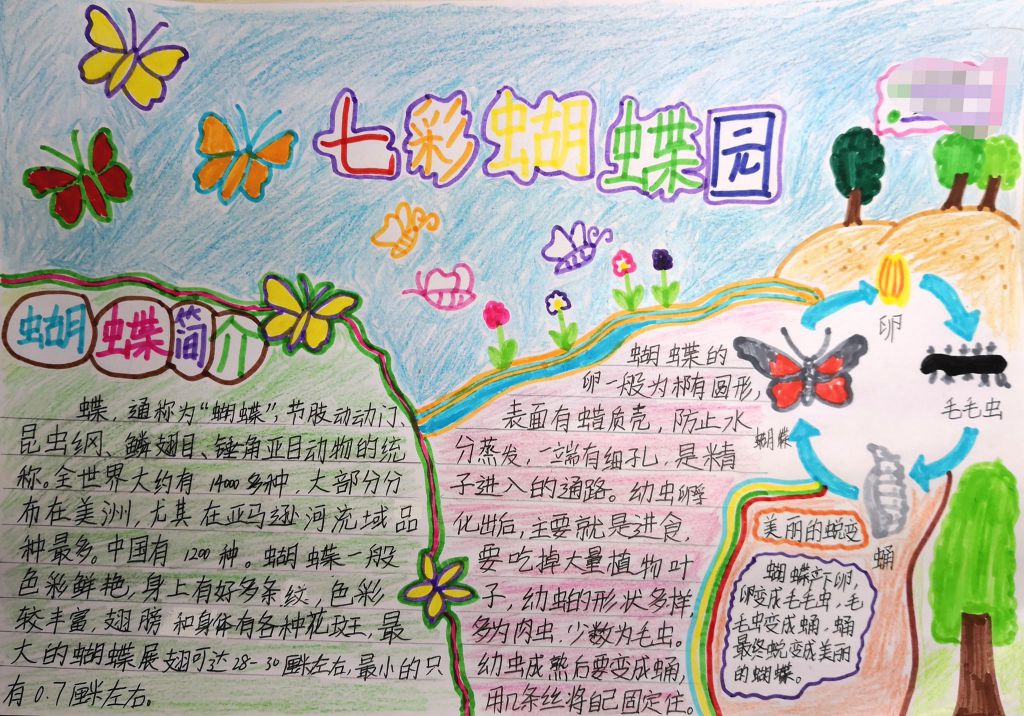 七彩蝴蝶园
蝴蝶简介
蝶，通称为“蝴蝶”，节肢动动门、
昆虫纲、鳞翅目、锤角亚目动物的统
称。全世界大约有14000多种，大部分分
布在美洲，尤其在亚马逊河流域品
种最多。中国有1200种。蝴蝶一般
色彩鲜艳，身上有好多条纹，色彩
较丰富，翅膀和身体有各种花斑，最
大的蝴蝶展翅可达28-30厘米左右，最小的只
有0.7厘米左右。
蝴蝶的
卵一般为椭有圆形，
表面有蜡质壳，防止水
分蒸发，一端有细孔，是精
子进入的通路。幼虫孵
化出后，主要就是进食，
要吃掉大量植物叶
子，幼虫的形状多样，
多为肉虫，少数为毛虫。
幼虫成熟后要变成蛹，
用几条丝将自己固定住。
卵
毛毛虫
蛹
蝴蝶
美丽的蜕变
蝴蝶产下卵，
卵变成毛毛虫，毛
毛虫变成蛹，蛹
最终蜕变成美丽
的蝴蝶。